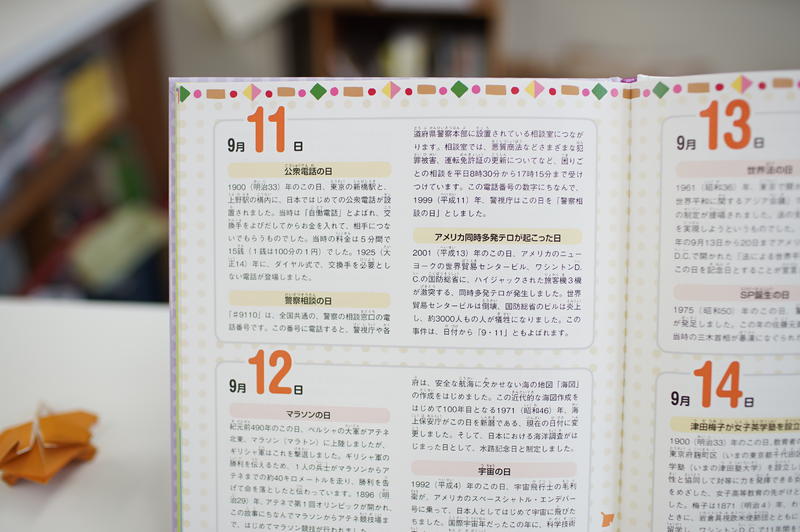 9月11日
公衆電話の日
1900（明治33）年のこの日、東京の新橋駅と、
上野駅の構内に、日本ではじめての公衆電話が設
置されました。当時は「自働電話」とよばれ、交
換手をよびだしてからお金を入れて、相手につな
いでもらうものでした。当時の料金は５分間で
15銭（１銭は100分の１円）でした。1925（大
正14）年に、ダイヤル式で、交換手を必要とし
ない電話が登場しました。
警察相談の日
「＃9110」は、全国共通の、警察の相談窓口の電
話番号です。この番号に電話すると、警視庁や各
道府県警察本部に設置されている相談室につなが
ります。相談室では、悪質商法などさまざまな犯
罪被害、運転免許証の更新についてなど、困りご
との相談を平日8時30分から17時15分まで受け
つけています。この電話番号の数字にちなんで、
1999（平成11）年、警視庁はこの日を「警察相
談の日」としました。
アメリカ同時多発テロが起こった日
2001（平成13）年のこの日、アメリカのニュー
ヨークの世界貿易センタービル、ワシントンD.
C.の国防総省に、ハイジャックされた旅客機３機
が激突する、同時多発テロが発生しました。世界
貿易センタービルは倒壊、国防総省のビルは炎上
し、約3000人もの人が犠牲になりました。この
事件は、日付から「9・11」ともよばれます。
9月12日
マラソンの日
紀元前490年のこの日、ペルシャの大軍がアテネ
北東、マラソン（マラトン）に上陸しましたが、
ギリシャ軍はこれを撃退しました。ギリシャ軍の
勝利を伝えるため、１人の兵士がマラソンからア
テネまでの約40キロメートルを走り、勝利を告
げて命を落としたと伝わっています。1896（明
治29）年、アテネで第１回オリンピックが開かれ、
この故事にちなんでマラソンからアテネ競技場ま
で、はじめてマラソン競技が行われました
府は、安全な航海に欠かせない海の地図「海図」
の作成をはじめました。この近代的な海図作成を
はじめて100年目となる1971（昭和46）年、海
上保安庁がこの日を新暦である、現在の日付に変
更しました。そして、日本における海洋調査がは
じまった日として、水路記念日と制定しました。
宇宙の日
1992（平成4）年のこの日、宇宙飛行士の毛利
衛が、アメリカのスペースシャトル・エンデバー
号に乗って、日本人としてはじめて宇宙に飛びた
ちました。国際宇宙年だったこの年に、科学技術
9月13日
世界法の日
1961（昭和36）年、東京で開
世界平和に関するアジア会議」で
の制定が提唱されました。法の
を実現しようというものでした。
年の9月13日から20日までアメ
D.C.で開かれた「法による世界平
この日を記念日とすることが宣言
SP誕生の日
1975（昭和50）年のこの日、
が発足しました。この年の佐藤元
当時の三木首相が暴漢になぐられ
9月14日
津田梅子が女子英学塾を設立
1900（明治33）年のこの日、教育者の
東京府麹町区（いまの東京都千代田区
学塾（いまの津田塾大学）を設立し
性と協同して対等に力を発揮できる女
をめざした、女子高等教育の先がけと
た。梅子は1871（明治4）年、わず
ときに、岩倉具視欧米使節団とともに